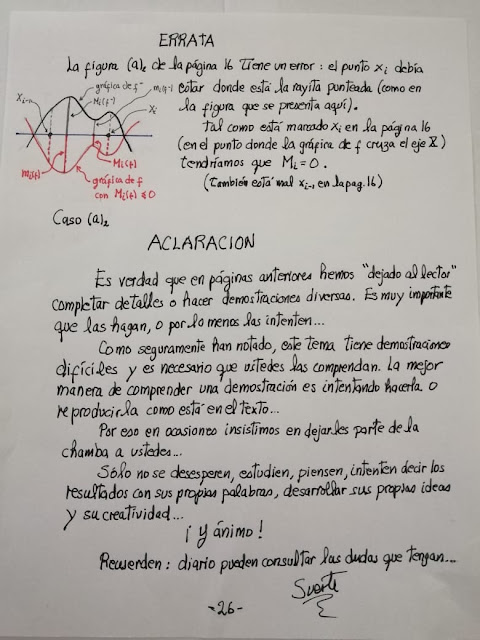 ERRATA
La figura (a)₂ de la página 16 tiene un error : el punto xi debía
gráfica de f⁻
Mi(f⁻)
mi(f⁻)
estar donde está la rayita punteada (como en
xi-1
xi
la figura que se presenta aquí).
Tal como está marcado xi en la página 16
(en el punto donde la gráfica de f cruza el eje X)
mi(f)
Mi(f)
tendríamos que Mi = 0.
gráfica de f
con Mi(f) ≤ 0
(También está mal xi-1 en la pag. 16)
Caso (a)₂
ACLARACION
Es verdad que en páginas anteriores hemos "dejado al lector"
completar detalles o hacer demostraciones diversas. Es muy importante
que las hagan, o por lo menos las intenten...
Como seguramente han notado, este tema tiene demostraciones
difíciles y es necesario que ustedes las comprendan. La mejor
manera de comprender una demostración es intentando hacerla o
reproducirla como está en el texto...
Por eso en ocasiones insistimos en dejarles parte de la
chamba a ustedes...
Sólo no se desesperen, estudien, piensen, intenten decir los
resultados con sus propias palabras, desarrollar sus propias ideas
y su creatividad...
¡Y ánimo!
Recuerden : diario pueden consultar las dudas que tengan...
Suerte
-26-